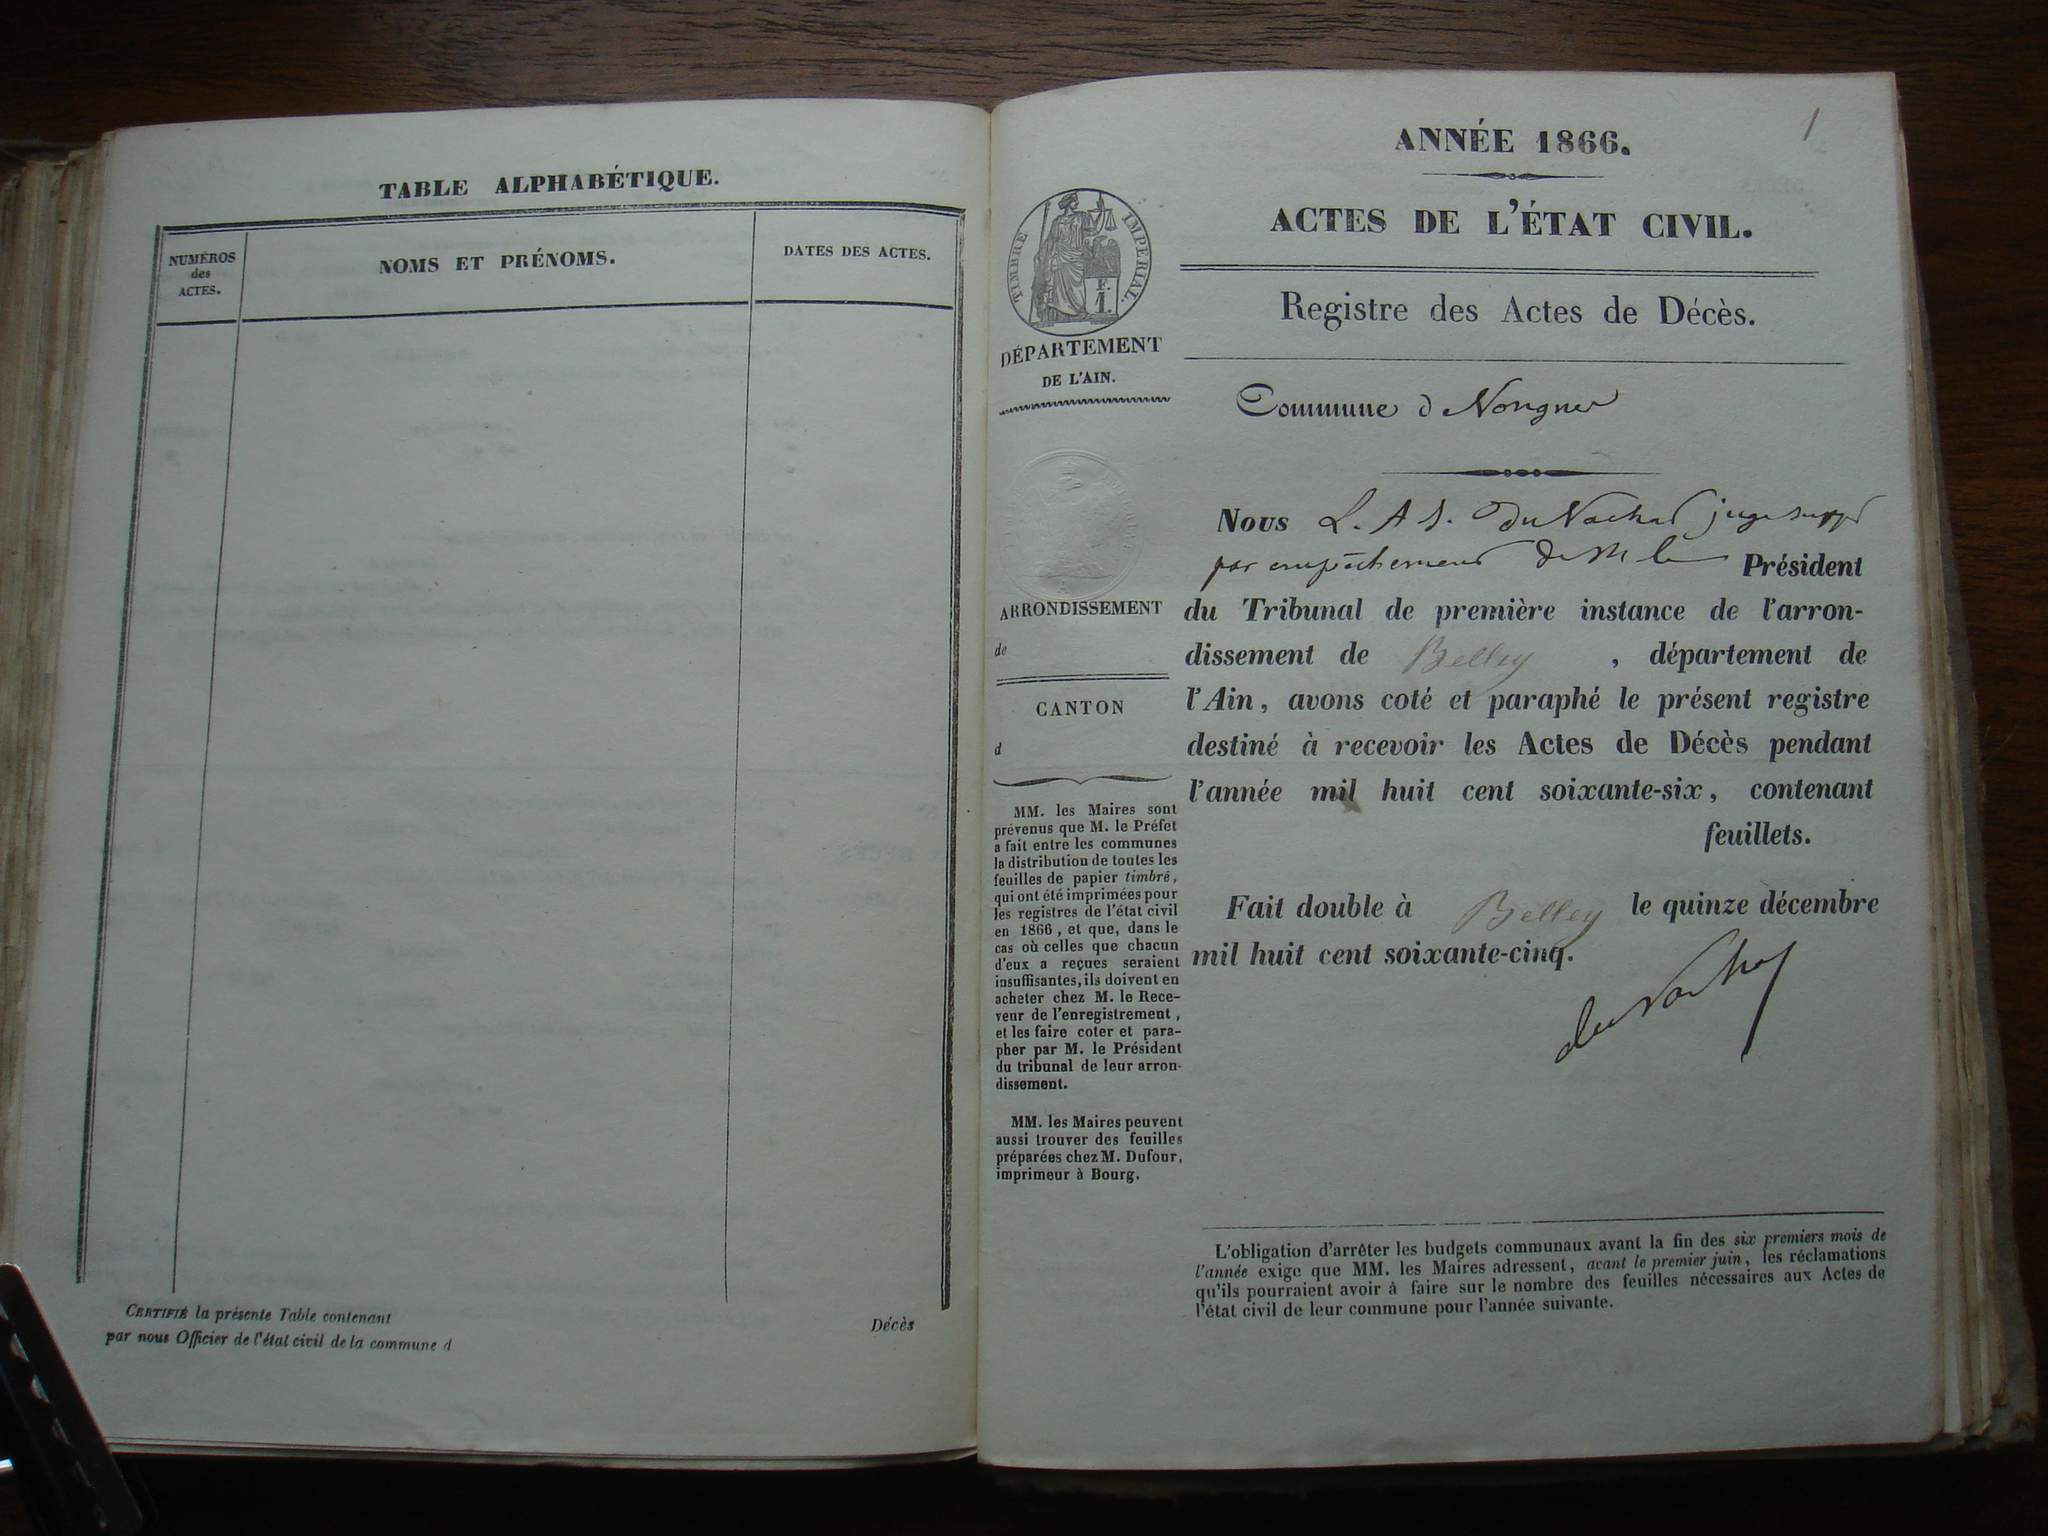 TABLE ALPHABÉTIQUE.
NUMÉROS
des
ACTES.
NOMS ET PRÉNOMS.
DATES DES ACTES.
CERTIFIÉ la présente Table contenant
Décès
par nous Officier de l'état civil de la commune d
1
ANNÉE 1866.
ACTES DE L'ÉTAT CIVIL.
Registre des Actes de Décès.
TIMBRE IMPÉRIAL.
F.
1.
DÉPARTEMENT
DE L'AIN.
ARRONDISSEMENT
de
CANTON
d
MM. les Maires sont
prévenus que M. le Préfet
a fait entre les communes
la distribution de toutes les
feuilles de papier timbré,
qui ont été imprimées pour
les registres de l'état civil
en 1866, et que, dans le
cas où celles que chacun
d'eux a reçues seraient
insuffisantes, ils doivent en
acheter chez M. le Rece-
veur de l'enregistrement,
et les faire coter et para-
pher par M. le Président
du tribunal de leur arron-
dissement.
MM. les Maires peuvent
aussi trouver des feuilles
préparées chez M. Dufour,
imprimeur à Bourg.
Commune d
Nous L. A S. du juge
par empêchement de M le Président
du Tribunal de première instance de l'arron-
dissement de Belley, département de
l'Ain, avons coté et paraphé le présent registre
destiné à recevoir les Actes de Décès pendant
l'année mil huit cent soixante-six, contenant
feuillets.
Fait double à Belley le quinze décembre
mil huit cent soixante-cinq.
L'obligation d'arrêter les budgets communaux avant la fin des six premiers mois de
l'année exige que MM. les Maires adressent, avant le premier juin, les réclamations
qu'ils pourraient avoir à faire sur le nombre des feuilles nécessaires aux Actes de
l'état civil de leur commune pour l'année suivante.